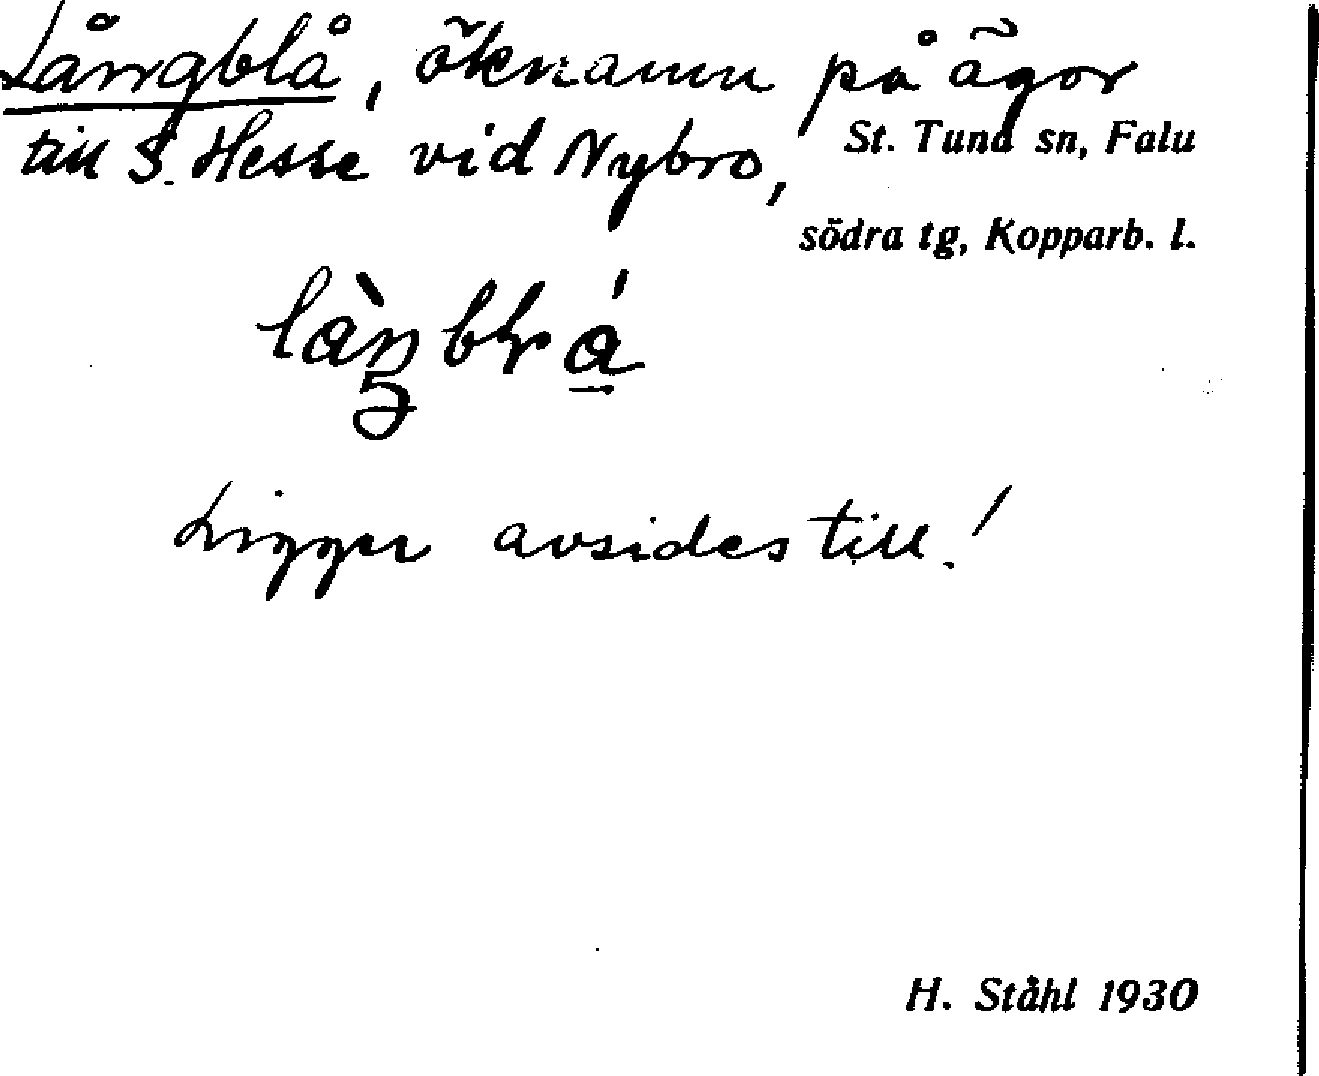 Långblå, öknamn på ägor
till S. Hesse vid Nybro,
St. Tuna sn, Falu
södra tg, Kopparb. l.
Ligger avsides till!
H. Ståhl 1930